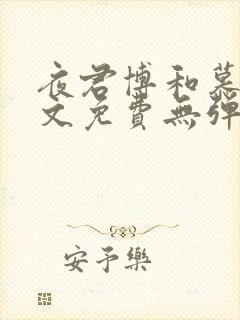 夜君博和慕
文免費無彈
安予樂